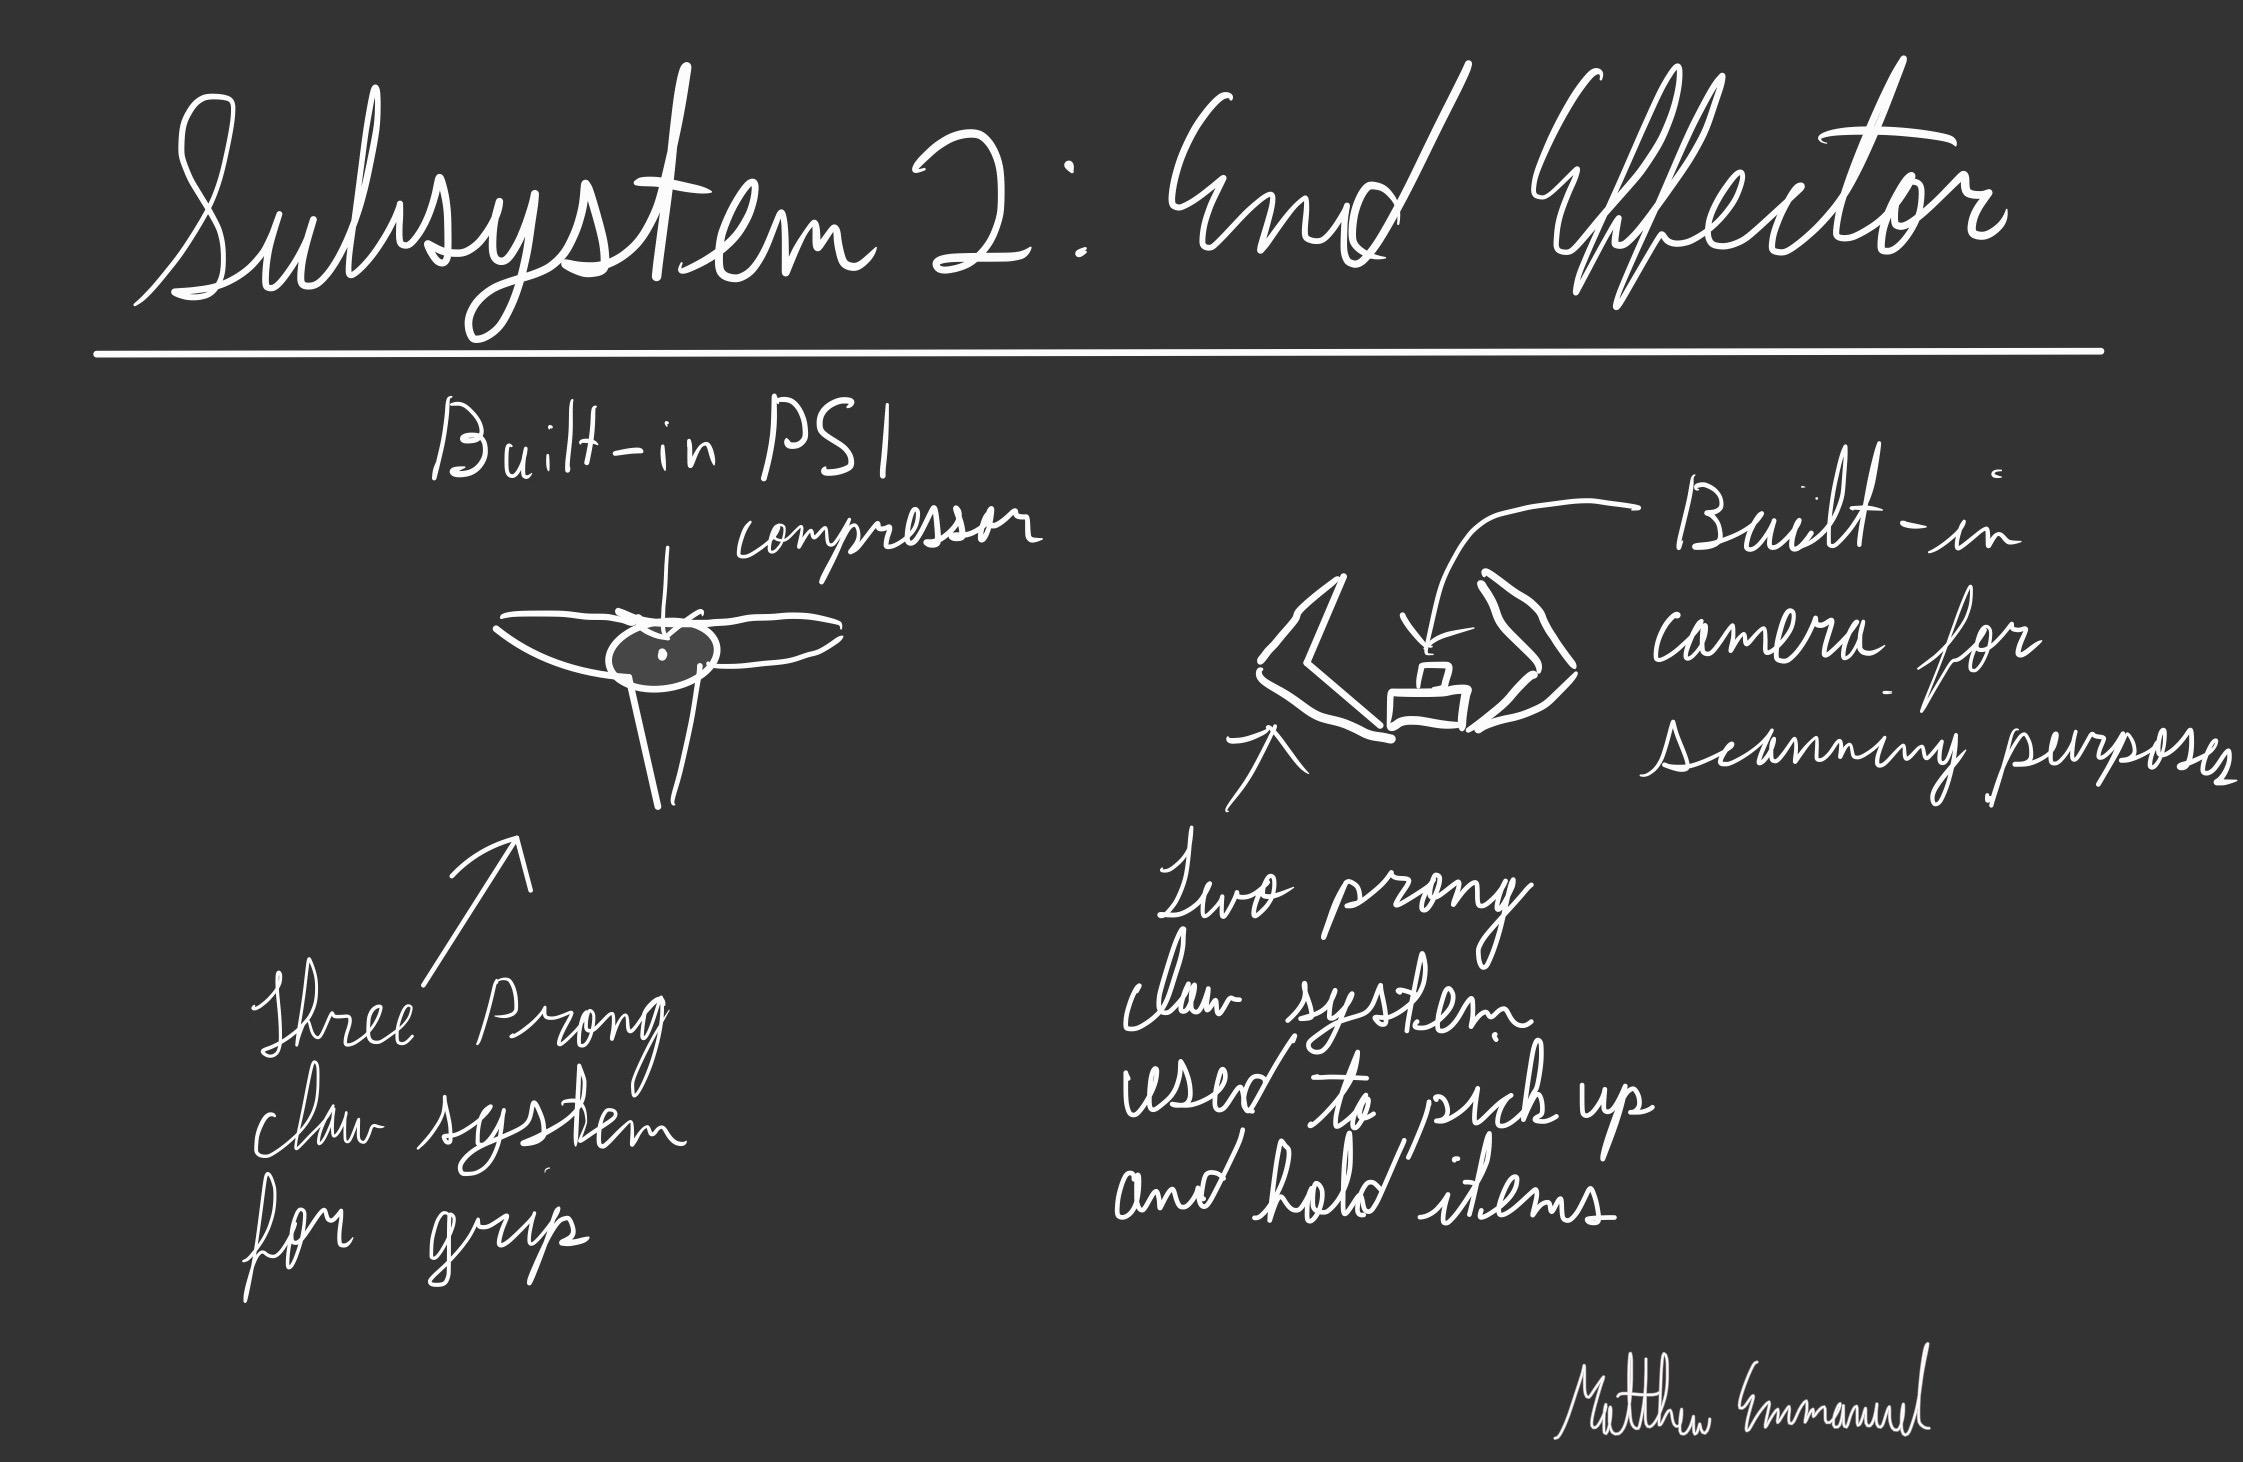 Subsystem 2: End Effector
Built-in PSI
compressor
Three Prong
claw system
for grip
Built-in
camera for
scanning purposes
Two prong
claw system
used to pick up
and hold items
Matthew Emmanuel